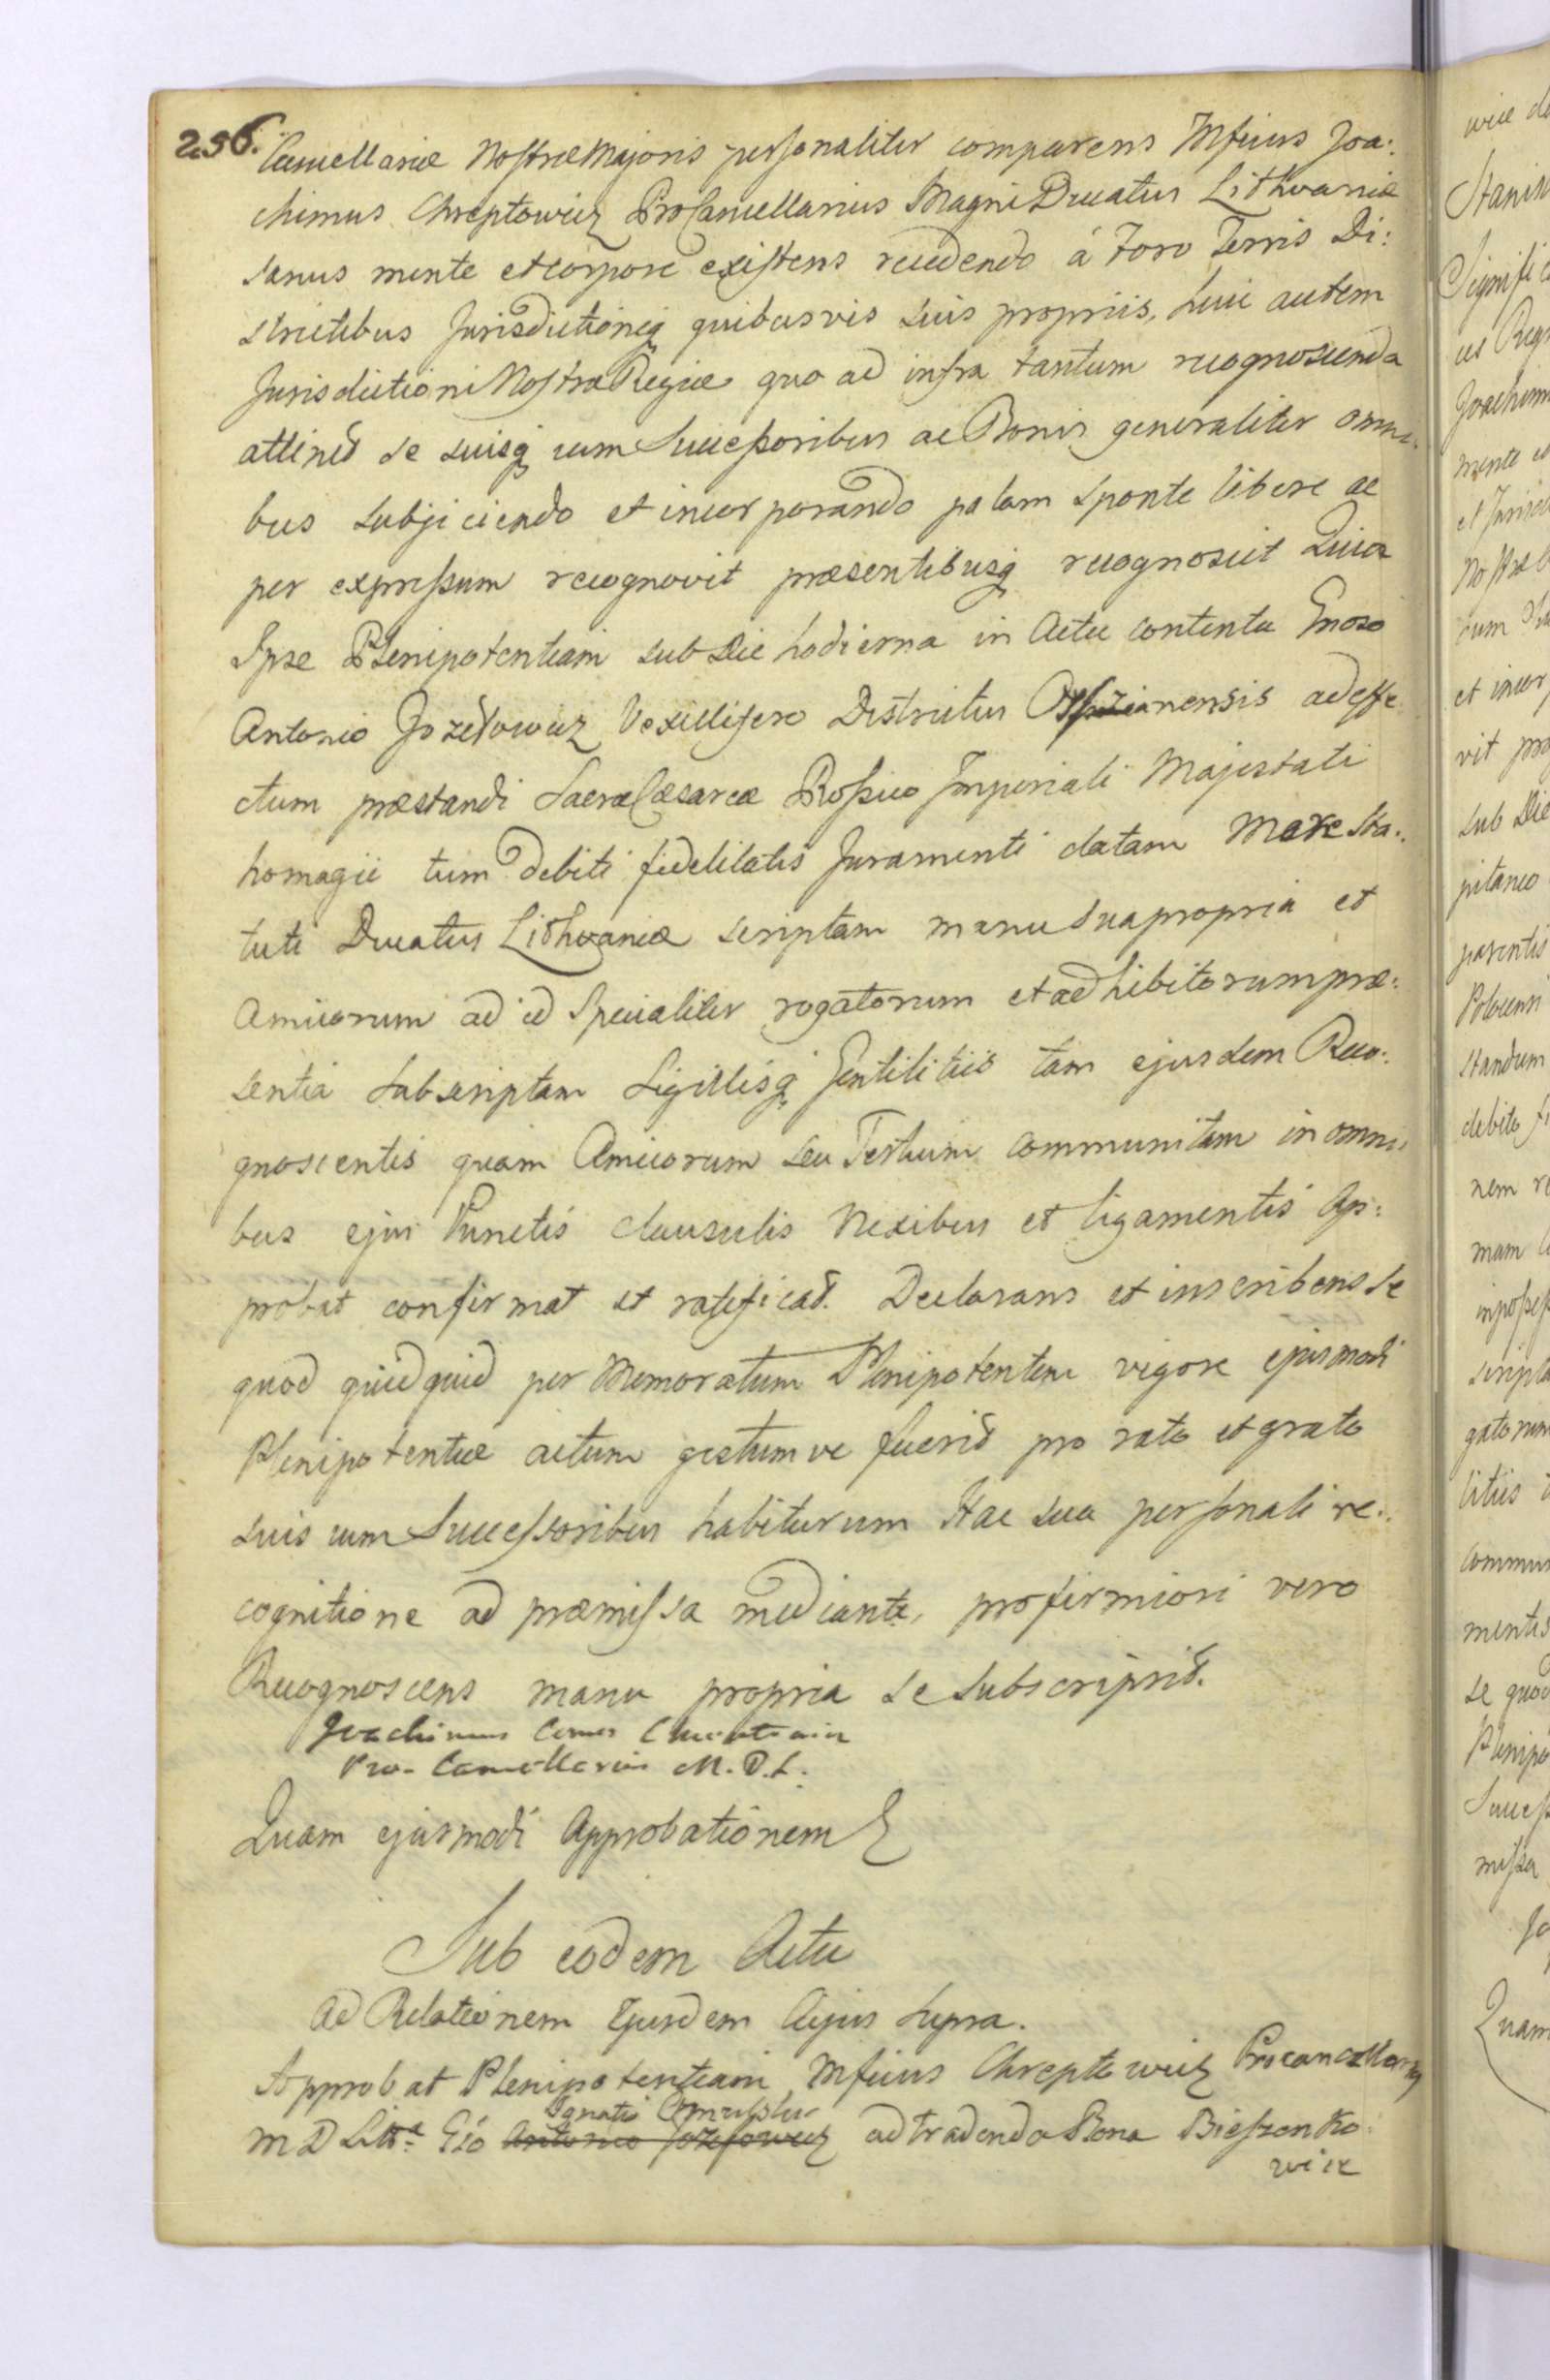 256.
Cancellariæ Nostræ Majoris personaliter comparens Mficus Joa:
chimus Chreptowicz ProCancellarius Magni Ducatus Lithvaniæ
sanus mente et corpore existens recedendo á Foro Terris Di:
strictibus Jurisdictioneq quibusvis suis propriis, huic autem
Jurisdictioni Nostræ Regiæ quo ad infra tantum recognoscenda
attinet se suisq cum Successoribus ac Bonis generaliter omni:
bus subjiciendo et incorporando palam sponte libere ac
per expressum recognovit præsentibusq recognoscit Quia
Ipse Plenipotentiam sub Die hodierna in Actu contenta Gnoso
Antonio Jozefowicz Vexillifero Districtus Oszmianensis ad effe
ctum præstandi Sacræ Cæsareæ Rossico Imperiali Majestati
homagii tum debiti fidelitatis Juramenti datam More Sta:
tuti Ducatus Lithvaniæ scriptam manu sua propria et
Amicorum ad id Specialiter rogatorum et adhibitorum præ:
sentia Subscriptam Sigillisq Gentilitiis tam ejusdem Reco:
gnoscentis quam Amicorum seu Testium communitam in omni
bus ejus Punctis clausulis Nexibus et ligamentis Ap:
probat confirmat et ratificat. Declarans et inscribens se
quod quidquid per Memoratum Plenipotentem vigore ejusmodi
Plenipotentiæ actum gestumve fuerit pro rato et grato
suis cum Successoribus habiturum Hac sua personali re:
cognitione ad præmissa mediante, pro firmiori vero
Recognoscens manu propria se subscripsit.
Joachimus Comes
Pro-Cancellarius M.D.L.
Quam ejusmodi Approbationem
Sub eodem Actu
Ad Relationem Ejusdem Cujus supra.
Approbat Plenipotentiam Mficus Chreptowicz Procancellarius
Ignatio
M D Litt: Gso Antonio Jozefowicz ad tradenda Bona Bieszenko:
wice